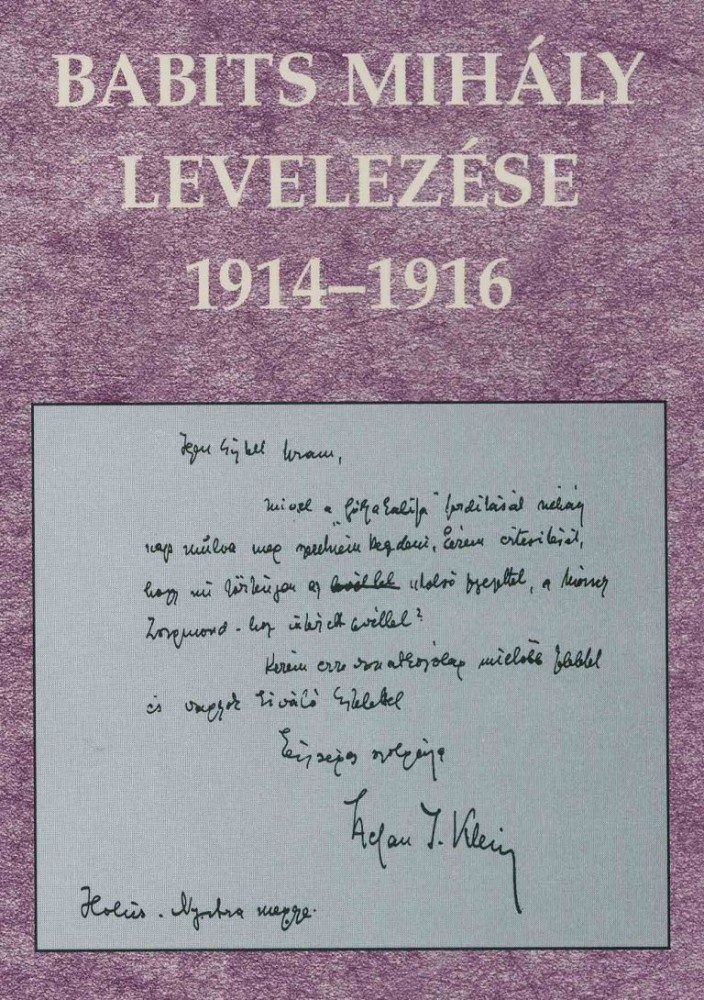 BABITS MIHÁLY
LEVELEZÉSE
1914–1916
Igen tisztelt Uram,
mivel a „Gólyakalifa" fordítását néhány
nap múlva meg szeretném kezdeni, kérem értesítését,
hogy mi történjen az utolsó fejezettel, a Móricz
Zsigmond-hoz intézett levéllel?
Kérem erre vonatkozólag mielőbb feleletét
és vagyok kiváló tisztelettel
Stefan J. Klein
Holics. Nyitra megye.